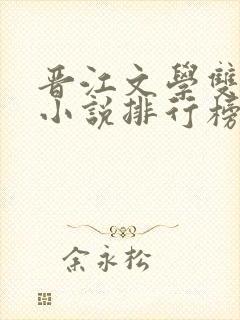 晋江文學雙
小説排行榜
余永松